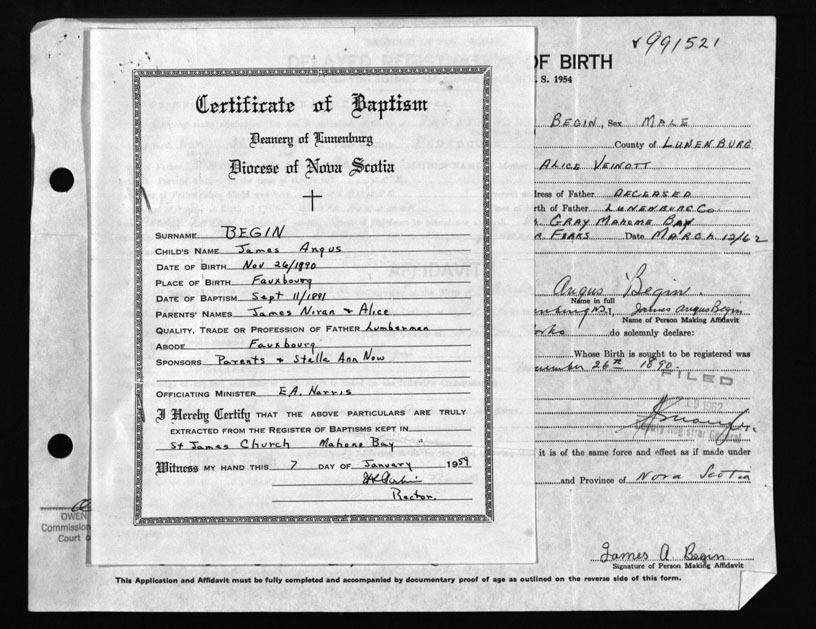 991521
OF BIRTH
S. 1954
BEGIN, Sex MALE
County of LUNENBURG
ALICE VEINOTT
dress of Father DECEASED
rth of Father LUNENBURG Co.
GRAY MAHONE BAY
Date MARCH 12/62
Angus Begin.
Name in full
I, James Angus Begin
Name of Person Making Affidavit
do solemnly declare:
Whose Birth is sought to be registered was
26th 1890.
FILED
1962
Deputy Registrar General
it is of the same force and effect as if made under
and Province of Nova Scotia
James A. Begin
Signature of Person Making Affidavit
OWEN
Commission
Court
This Application and Affidavit must be fully completed and accompanied by documentary proof of age as outlined on the reverse side of this form.
Certificate of Baptism
Deanery of Lunenburg
Diocese of Nova Scotia
SURNAME BEGIN
CHILD'S NAME James Angus
DATE OF BIRTH Nov 26/1890
PLACE OF BIRTH Fauxbourg
DATE OF BAPTISM Sept 11/1891
PARENTS' NAMES James Niran & Alice
QUALITY, TRADE OR PROFESSION OF FATHER Lumberman
ABODE Fauxbourg
SPONSORS Parents & Stella Ann Now
OFFICIATING MINISTER E.A. Harris
I Hereby Certify THAT THE ABOVE PARTICULARS ARE TRULY
EXTRACTED FROM THE REGISTER OF BAPTISMS KEPT IN
St James Church Mahone Bay
Witness MY HAND THIS 7 DAY OF January 1959
Rector.